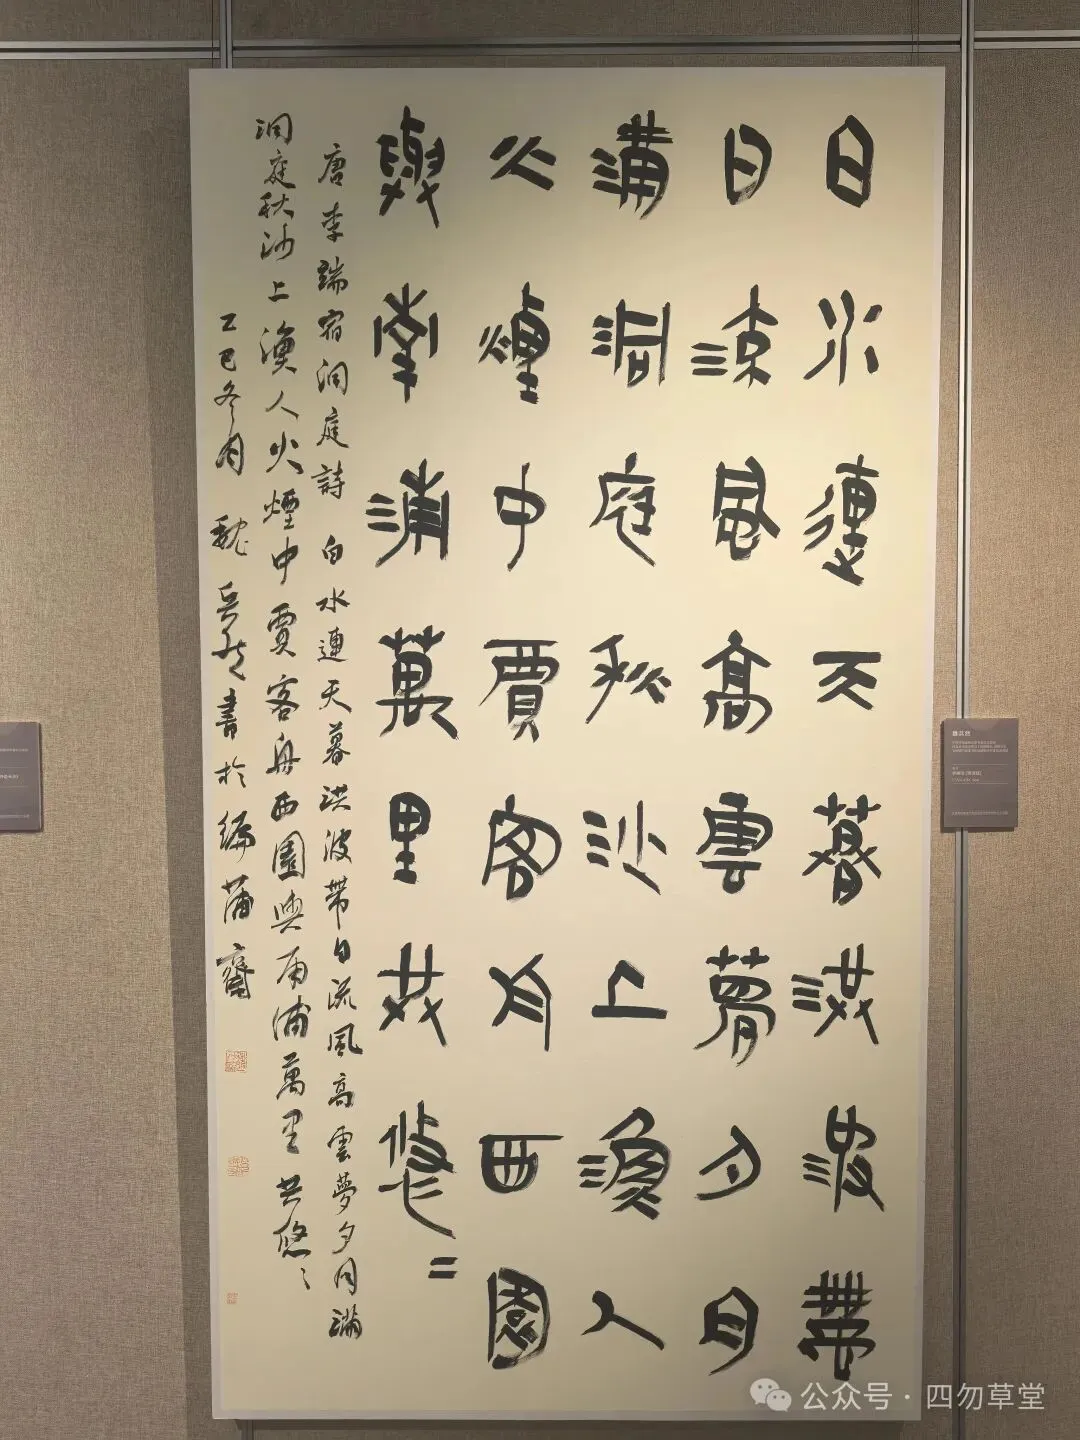 白水連天暮洪波帶
日流風高雲夢夕月
滿洞庭秋沙上漁人
火煙中賈客舟西園
與南浦萬里共悠〻
唐李端宿洞庭詩 白水連天暮洪波帶日流風高雲夢夕月滿
洞庭秋沙上漁人火煙中賈客舟西園與南浦萬里共悠〻
乙巳冬月 魏 書於編蒲齋
公众号·四勿草堂